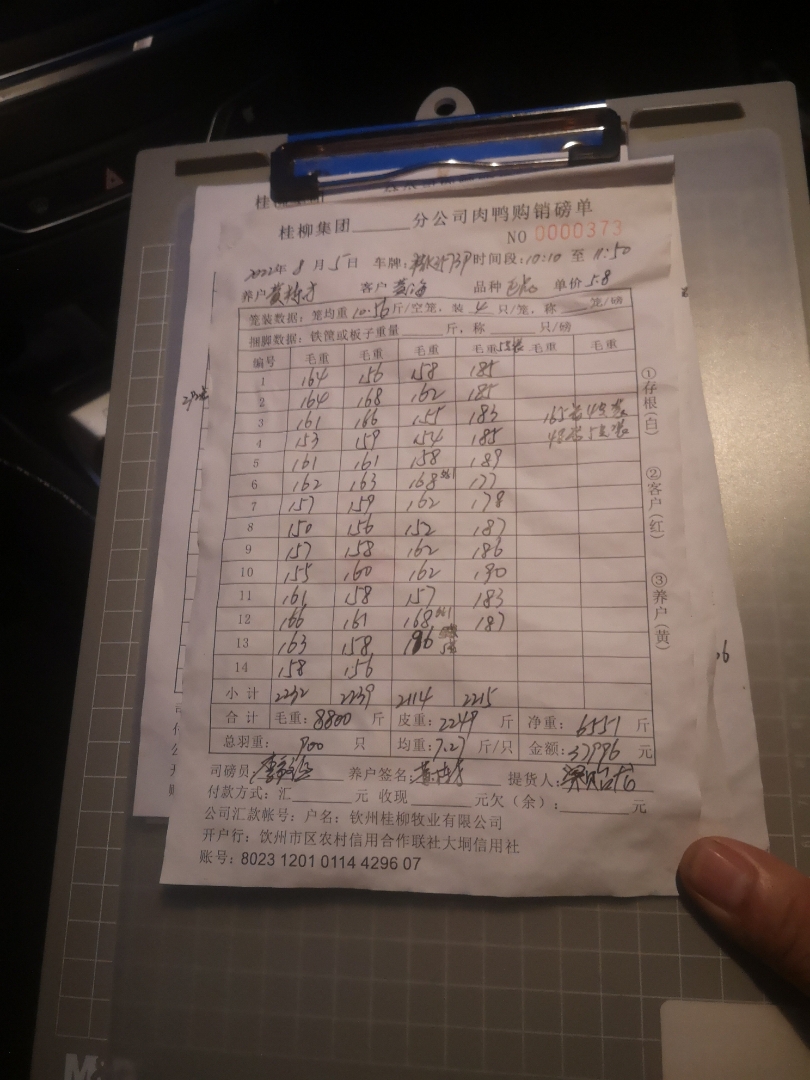 桂柳集团______分公司肉鸭购销磅单
NO 0000373
2022年 8 月 5 日 车牌: 时间段:10:10 至 11:50
养户 客户 黄海 品种 单价 5.8
笼装数据:笼均重 10.56 斤/空笼,装 4 只/笼,称____笼/磅
捆脚数据:铁筐或板子重量______斤,称______只/磅
编号 毛重 毛重 毛重 毛重 毛重 毛重
1 164 156 158 185
2 164 168 162 185
3 161 166 155 183 165 4支装
4 153 159 154 185 48 5支装
5 161 161 158 189
6 162 163 168 177
7 157 159 162 178
8 150 156 152 187
9 157 158 162 186
10 155 160 162 190
11 161 158 157 183
12 166 161 168 187
13 163 158 196
14 158 156
小计 2232 2239 2114 2215
合计 毛重:8800 斤 皮重:2249 斤 净重:6551 斤
总羽重: 900 只 均重:7.27 斤/只 金额:37996 元
司磅员: 养户签名: 提货人:
付款方式:汇______元 收现______元欠(余):______元
公司汇款帐号:户名:钦州桂柳牧业有限公司
开户行:饮州市区农村信用合作联社大垌信用社
账号:8023 1201 0114 4296 07
①存根(白)
②客户(红)
③养户(黄)